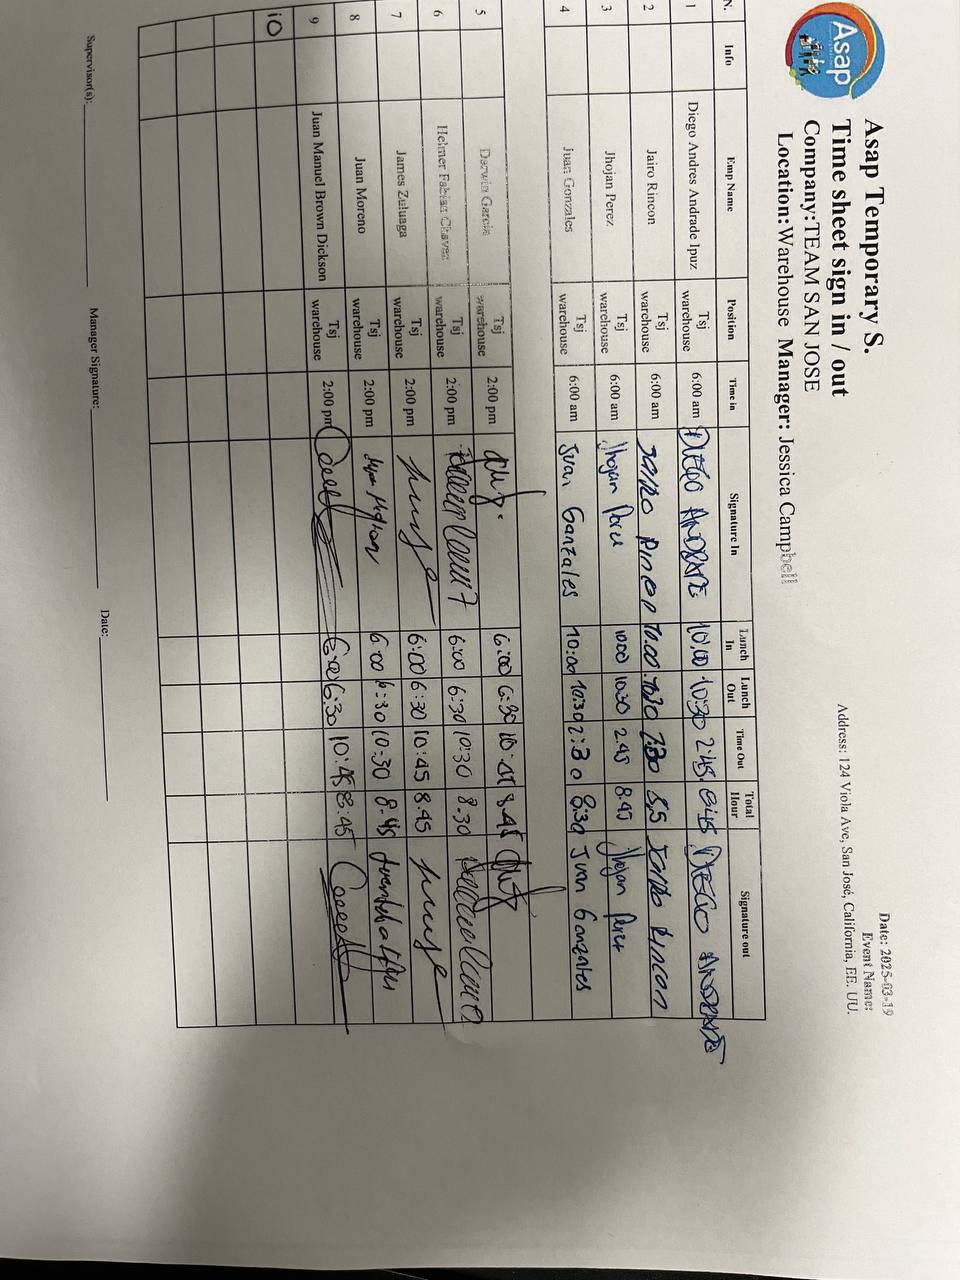 Asap
Asap Temporary S.
Time sheet sign in / out
Company:TEAM SAN JOSE
Location:Warehouse Manager: Jessica Campbell
Date: 2025-03-19
Event Name:
Address: 124 Viola Ave, San José, California, EE. UU.
N. Info Emp Name Position Time in Signature In Lunch In Lunch Out Time Out Total Hour Signature out
1 Diego Andres Andrade Ipuz Tsj warehouse 6:00 am DIEGO ANDRADE 10:00 10:30 2:45 8:45 DIEGO ANDRADE
2 Jairo Rincon Tsj warehouse 6:00 am Jairo Rincon 10:00 10:30 Jairo Rincon
3 Jhojan Perez Tsj warehouse 6:00 am Jhojan Perez 10:00 10:30 2.45 8.45 Jhojan Perez
4 Juan Gonzales Tsj warehouse 6:00 am Juan Gonzales 10:00 10:30 2:30 8:30 Juan Gonzales
5 Darwin Garcia Tsj warehouse 2:00 pm 6:00 6:30 8.45
6 Helmer Fabian Chavez Tsj warehouse 2:00 pm 6:00 6:30 10:30 8.30
7 James Zuluaga Tsj warehouse 2:00 pm 6:00 6:30 10:45 8.45
8 Juan Moreno Tsj warehouse 2:00 pm 6:00 6:30 10:30 8.45
9 Juan Manuel Brown Dickson Tsj warehouse 2:00 pm 6:00 6:30 10:45 8:45
10
Supervisor(s): Manager Signature: Date: